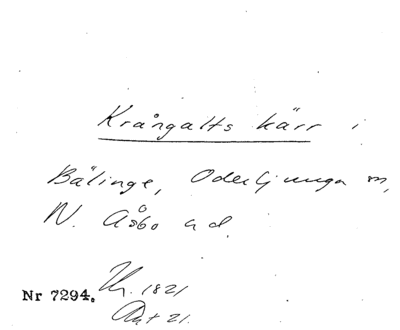 Krångalts kärr i
Bälinge, Oderljunga sn,
N. Åsbo hd.
Nr 7294. 1821
Akt 21.